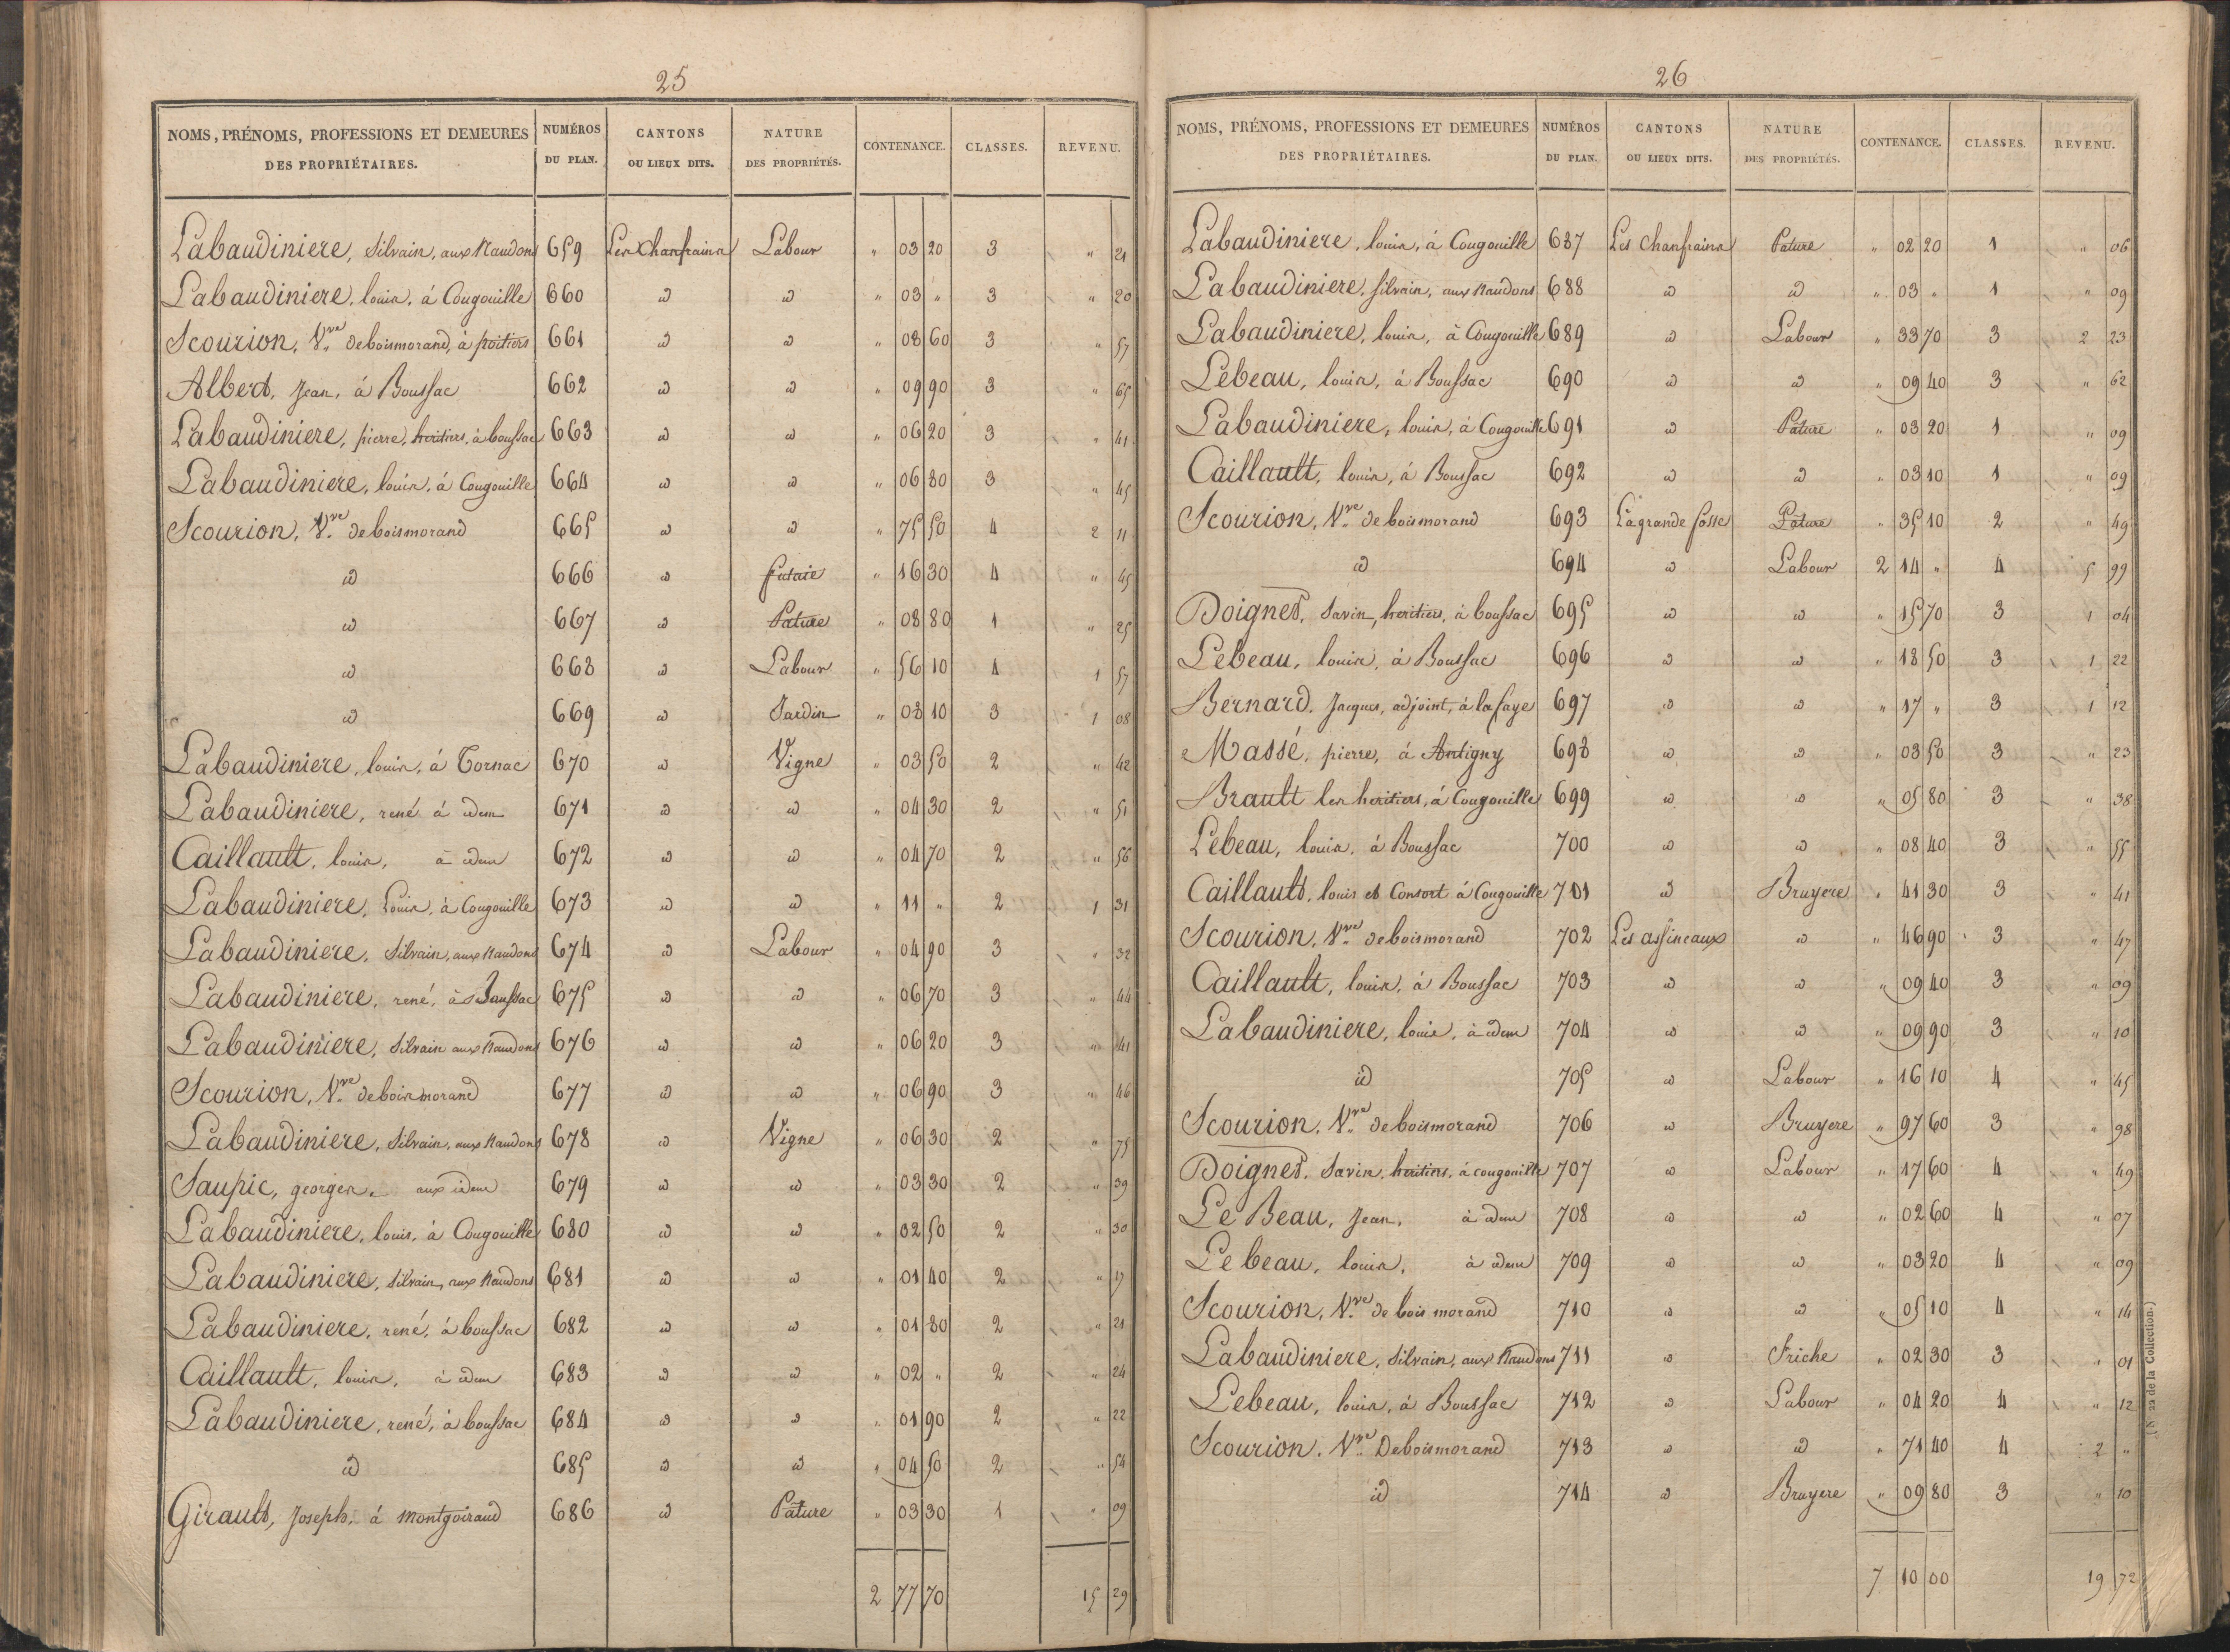 25
NOMS, PRÉNOMS, PROFESSIONS ET DEMEURES DES PROPRIÉTAIRES. NUMÉROS DU PLAN. CANTONS OU LIEUX DITS. NATURE DES PROPRIÉTÉS. CONTENANCE. CLASSES. REVENU.
Labaudiniere, Silvain, aux Naudons 659 Les Chanfrains Labour " 03 20 3 " 21
Labaudiniere, louis, à Cougouille 660 id id " 03 " 3 " 20
Scourion, Vve deboismorand, à poitiers 661 id id " 08 60 3 " 57
Albert, Jean, à Boussac 662 id id " 09 90 3 " 65
Labaudiniere, pierre, heritiers, à boussac 663 id id " 06 20 3 " 41
Labaudiniere, louis, à Cougouille 664 id id " 06 80 3 " 45
Scourion, Vve deboismorand 665 id id " 75 50 4 2 11
id 666 id futaie " 16 30 4 " 45
id 667 id Pature " 08 80 1 " 25
id 668 id Labour " 56 10 4 1 57
id 669 id Jardin " 08 10 3 1 08
Labaudiniere, louis, à Tornac 670 id Vigne " 03 50 2 " 42
Labaudiniere, rené à idem 671 id id " 04 30 2 " 51
Caillault, louis, à idem 672 id id " 04 70 2 " 56
Labaudiniere, Louis, à Cougouille 673 id id " 11 " 2 1 31
Labaudiniere, Silvain, aux Naudons 674 id Labour " 04 90 3 " 32
Labaudiniere, rené, à 675 id id " 06 70 3 " 44
Labaudiniere, Silvain aux Naudons 676 id id " 06 20 3 " 41
Scourion, Vve deboismorand 677 id id " 06 90 3 " 46
Labaudiniere, Silvain, aux Naudons 678 id Vigne " 06 30 2 " 75
Saupic, georges, aux idem 679 id id " 03 30 2 " 39
Labaudiniere, louis, à Cougouille 680 id id " 02 50 2 " 30
Labaudiniere, Silvain, aux Naudons 681 id id " 01 40 2 " 17
Labaudiniere, rené, à boussac 682 id id " 01 80 2 " 21
Caillault, louis, à idem 683 id id " 02 " 2 " 24
Labaudiniere, rené, à boussac 684 id id " 01 90 2 " 22
id 685 id id " 04 50 2 " 54
Girault, Joseph, à Montgoiraud 686 id Pature " 03 30 1 " 09
2 77 70 15 29
26
NOMS, PRÉNOMS, PROFESSIONS ET DEMEURES DES PROPRIÉTAIRES. NUMÉROS DU PLAN. CANTONS OU LIEUX DITS. NATURE DES PROPRIÉTÉS. CONTENANCE. CLASSES. REVENU.
Labaudiniere, louis, à Cougouille 687 Les Chanfrains Pature " 02 20 1 " 06
Labaudiniere, silvain, aux Naudons 688 id id " 03 " 1 " 09
Labaudiniere, louis, à Cougouille 689 id Labour " 33 70 3 2 23
Lebeau, louis, à Boussac 690 id id " 09 40 3 " 62
Labaudiniere, louis, à Cougouille 691 id Pature " 03 20 1 " 09
Caillault, louis, à Boussac 692 id id " 03 10 1 " 09
Scourion, Vve de boismorand 693 La grande fosse Pature " 35 10 2 " 49
id 694 id Labour 2 14 " 4 5 99
Doignet, Savin, heritiers, à boussac 695 id id " 15 70 3 1 04
Lebeau, louis, à Boussac 696 id id " 18 50 3 1 22
Bernard, Jacques, adjoint, à lafaye 697 id id " 17 " 3 1 12
Massé, pierre, à Antigny 698 id id " 03 50 3 " 23
Brault les heritiers, à Cougouille 699 id id " 05 80 3 " 38
Lebeau, louis, à Boussac 700 id id " 08 40 3 " 55
Caillault, louis et Consort à Cougouille 701 id Bruyere " 41 30 3 " 41
Scourion, Vve deboismorand 702 Les assineaux id " 46 90 3 " 47
Caillault, louis, à Boussac 703 id id " 09 40 3 " 09
Labaudiniere, louis, à idem 704 id id " 09 90 3 " 10
id 705 id Labour " 16 10 4 " 45
Scourion, Vve deboismorand 706 id Bruyere " 97 60 3 " 98
Doignet, Savin, heritiers, à cougouille 707 id Labour " 17 60 4 " 49
Le Beau, Jean, à idem 708 id id " 02 60 4 " 07
Le beau, louis, à idem 709 id id " 03 20 4 " 09
Scourion, Vve de bois morand 710 id id " 05 10 4 " 14
Labaudiniere, Silvain, aux Naudons 711 id Friche " 02 30 3 " 01
Lebeau, louis, à Boussac 712 id Labour " 04 20 4 " 12
Scourion, Vve Deboismorand 713 id id " 71 40 4 2 "
id 714 id Bruyere " 09 80 3 " 10
7 10 00 19 72
(N° 22 de la Collection.)